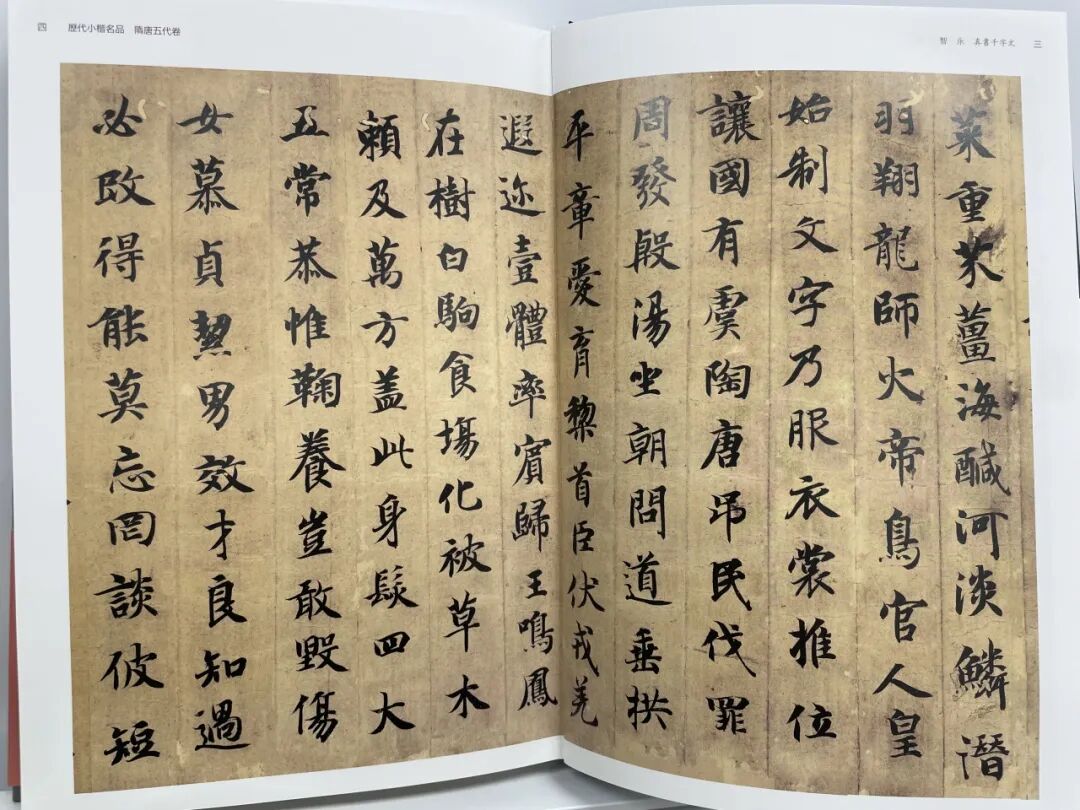 智永 真書千字文 三
菜重芥薑海醎河淡鱗潛
羽翔龍師火帝鳥官人皇
始制文字乃服衣裳推位
讓國有虞陶唐吊民伐罪
周發殷湯坐朝問道垂拱
平章愛育黎首臣伏戎羌
四 歷代小楷名品 隋唐五代卷
遐迩壹體率賓歸王鳴鳳
在樹白駒食場化被草木
賴及萬方盖此身髮四大
五常恭惟鞠養豈敢毀傷
女慕貞絜男效才良知過
必改得能莫忘罔談彼短